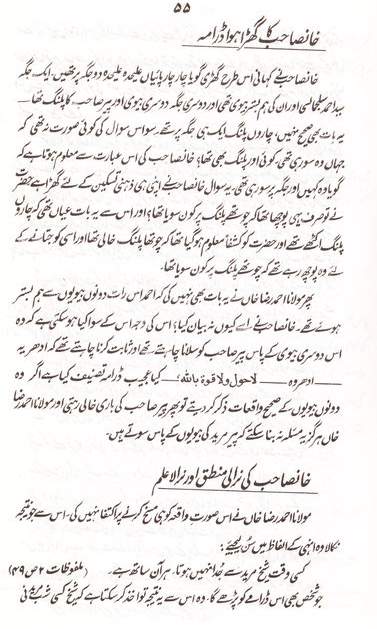 ۵۵
خانصاحب کا گھڑا ہوا ڈرامہ
خانصاحب نے کہانی اس طرح گھڑی گویا چار چارپائیاں علیحدہ علیحدہ دو جگہ پر تھیں، ایک جگہ
سید احمد سلجماسی اور ان کی ہم بستر بیوی تھی اور دوسری جگہ دوسری بیوی اور پیر صاحب کا پلنگ تھا —
یہ بات بھی صحیح نہیں، چاروں پلنگ ایک ہی جگہ پر تھے۔ سو اس سوال کی کوئی صورت نہ تھی کہ
جہاں وہ سو رہی تھی۔ کوئی اور پلنگ بھی تھا؟ خانصاحب کی اس عبارت سے معلوم ہوتا ہے کہ
گویا وہ کہیں اور جگہ پر سو رہی تھی۔ یہ سوال خانصاحب نے اپنی ہی ذہنی تسکین کے لئے گھڑا ہے حضرت
نے تو صرف یہی پوچھا تھا کہ چوتھے پلنگ پر کون سویا تھا؟ اور اس سے یہ بات عیاں تھی کہ چاروں
پلنگ اکٹھے تھے اور حضرت کو کشفاً معلوم ہو گیا تھا کہ چوتھا پلنگ خالی تھا اور اسی کو جتانے کے
لئے وہ پوچھ رہے تھے کہ چوتھے پلنگ پر کون سویا تھا۔
پھر مولانا احمد رضا خاں نے یہ بات بھی نہیں کی کہ احمد اس رات دونوں بیویوں سے ہم بستر
ہوئے تھے۔ خانصاحب نے اسے کیوں نہ بیان کیا؟ اس کی وجہ اس کے سوا کیا ہو سکتی ہے کہ وہ
اس دوسری بیوی کے پاس پیر صاحب کو سلانا چاہتے تھے اور ثابت کرنا چاہتے تھے کہ ادھر یہ
— ادھر وہ — لاحول ولا قوۃ باللہ؛ کیا عجیب ڈرامہ تصنیف کیا ہے اگر وہ
دونوں بیویوں کے صحیح واقعات ذکر کر دیتے تو پھر پیر صاحب کی باری خالی رہتی اور مولانا احمد رضا
خاں ہرگز یہ مسئلہ نہ بنا سکتے کہ پیر مرید کی بیویوں کے پاس سوتے ہیں۔
خانصاحب کی نرالی منطق اور نرالا علم
مولانا احمد رضا خاں نے اس صورتِ واقعہ کو ہی مسخ کرنے پر اکتفا نہیں کی۔ اس سے جو نتیجہ
نکالا وہ انہی کے الفاظ میں سُن لیجئے:
کسی وقت شیخ مرید سے جدا نہیں ہوتا۔ ہر آن ساتھ ہے۔ (ملفوظات ۲ ص ۴۹)
جو شخص بھی اس ڈرامے کو پڑھے گا۔ وہ اس سے یہ نتیجہ تو اخذ کر سکتا ہے کہ شیخ کسی